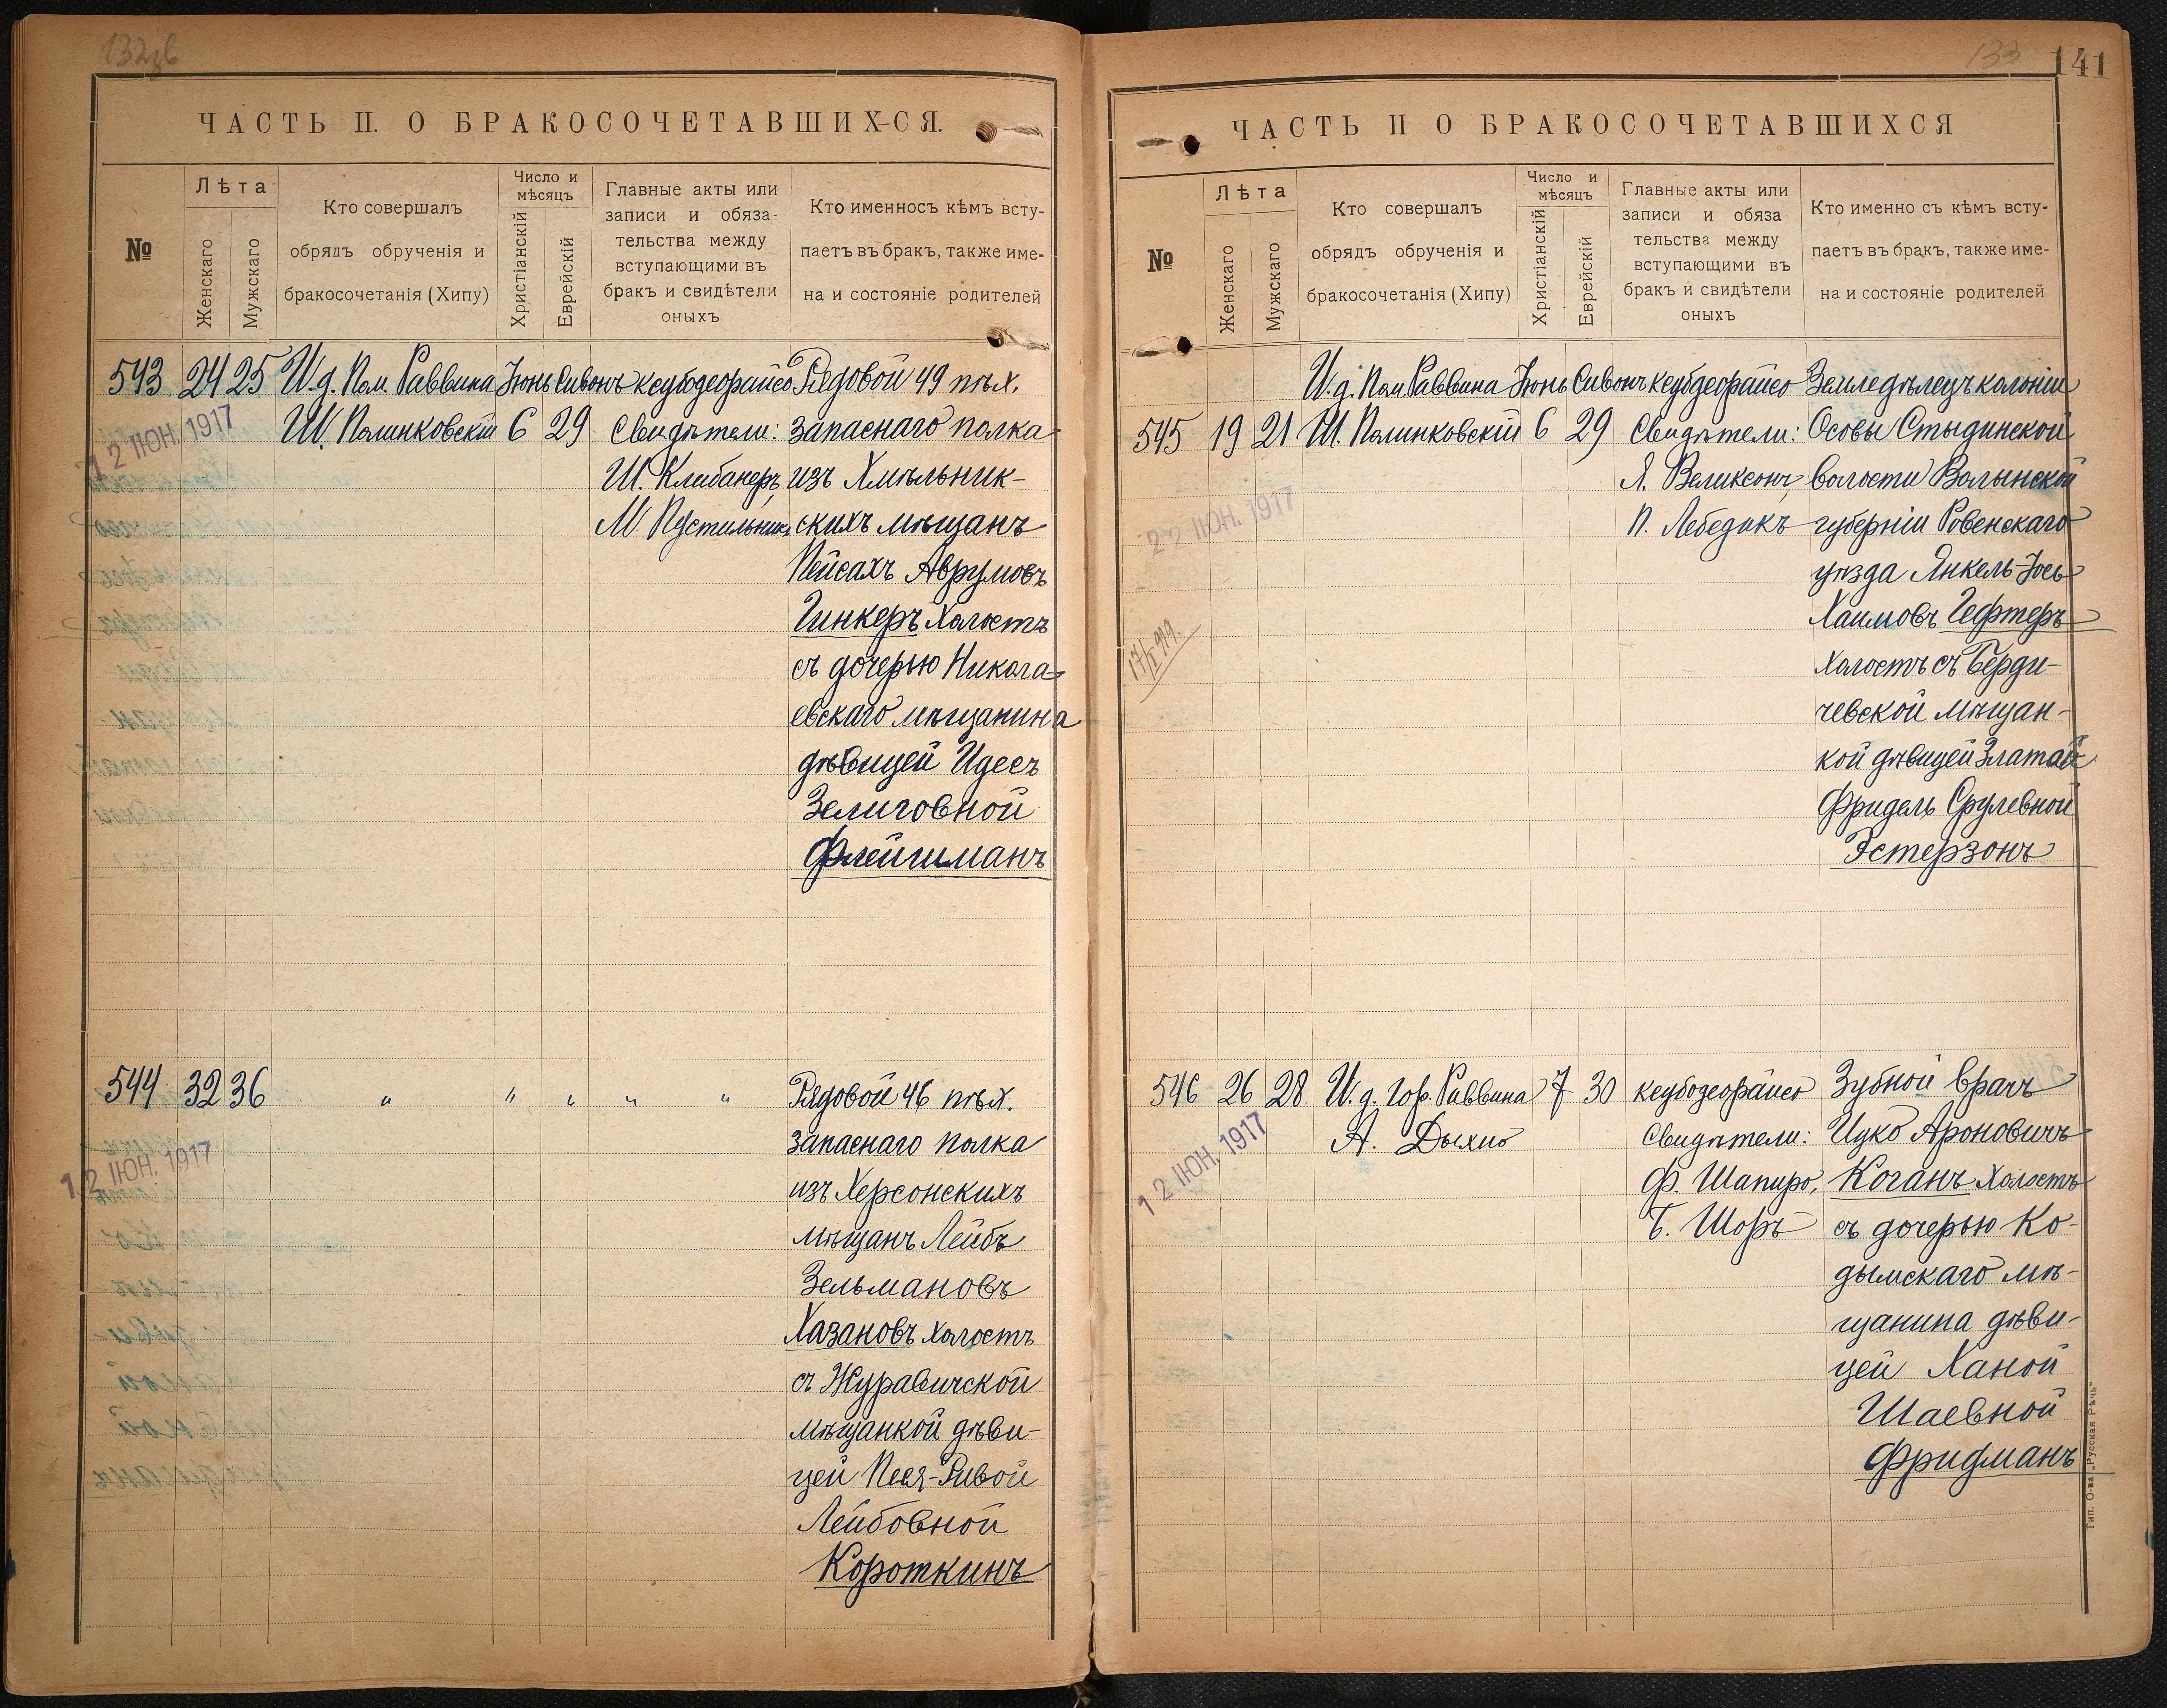 132об
ЧАСТЬ II. О БРАКОСОЧЕТАВШИХ-СЯ.
№
Лѣта
Женскаго
Мужскаго
Кто совершалъ
обрядъ обрученія и
бракосочетанія (Хипу)
Число и
мѣсяцъ
Христіанскій
Еврейскій
Главные акты или
записи и обяза-
тельства между
вступающими въ
бракъ и свидѣтели
оныхъ
Кто именносъ кѣмъ всту-
паетъ въ бракъ, также име-
на и состояніе родителей
543 24 25 И.д. Пом. Раввина Іюнь Сивонъ ксубодеорайсо Рядовой 49 пѣх.
12 ІЮН. 1917
Ш. Полинковскій 6 29 Свидѣтели: запаснаго полка
Ш. Клибанеръ, изъ Хмѣльник-
М Пустильникъ скихъ мѣщанъ
Пейсахъ Аврумовъ
Гинкеръ холостъ
съ дочерью Никола-
евскаго мѣщанина
дѣвицей Идесъ
Зелиговной
Флейшманъ
544 32 36 " " " " " Рядовой 46 пѣх.
12 ІЮН. 1917
запаснаго полка
изъ Херсонскихъ
мѣщанъ Лейбъ
Зельмановъ
Хазановъ холостъ
съ Журавичской
мѣщанкой дѣви-
цей Песя-Ривой
Лейбовной
Короткинъ
133
141
ЧАСТЬ II О БРАКОСОЧЕТАВШИХСЯ
№
Лѣта
Женскаго
Мужскаго
Кто совершалъ
обрядъ обрученія и
бракосочетанія (Хипу)
Число и
мѣсяцъ
Христіанскій
Еврейскій
Главные акты или
записи и обяза
тельства между
вступающими въ
бракъ и свидѣтели
оныхъ
Кто именно съ кѣмъ всту-
паетъ въ бракъ, также име-
на и состояніе родителей
И.д. Пом. Раввина Іюнь Сивонъ ксубодеорайсо Земледѣлецъ колоніи
545 19 21 Ш. Полинковскій 6 29 Свидѣтели: Осовы Стыдинской
Я. Великсонъ, волости Волынской
22 ІЮН. 1917
П. Лебедикъ губерніи Ровенскаго
уѣзда Янкель-Іось
Хаимовъ Гефтеръ
17/I 919.
холостъ съ Берди-
чевской мѣщан-
кой дѣвицей Златай-
Фридель Срулевной
Эстерзонъ
546 26 28 И.д. Гор. Раввина 7 30 ксубодеорайсо Зубной врачъ
12 ІЮН. 1917
А. Дыхно Свидѣтели: Ицко Ароновичъ
Ф. Шапиро, Коганъ холостъ
Б. Шоръ съ дочерью Ко-
дымскаго мѣ-
щанина дѣви-
цей Ханой
Шаевной
Фридманъ
Тип. О-ва „Русская Рѣчь"